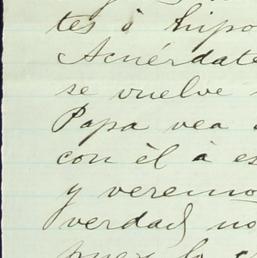 tes ó hipo
Acuérdate
se vuelve
Papa vea
con él á es
y veremo
verdad no